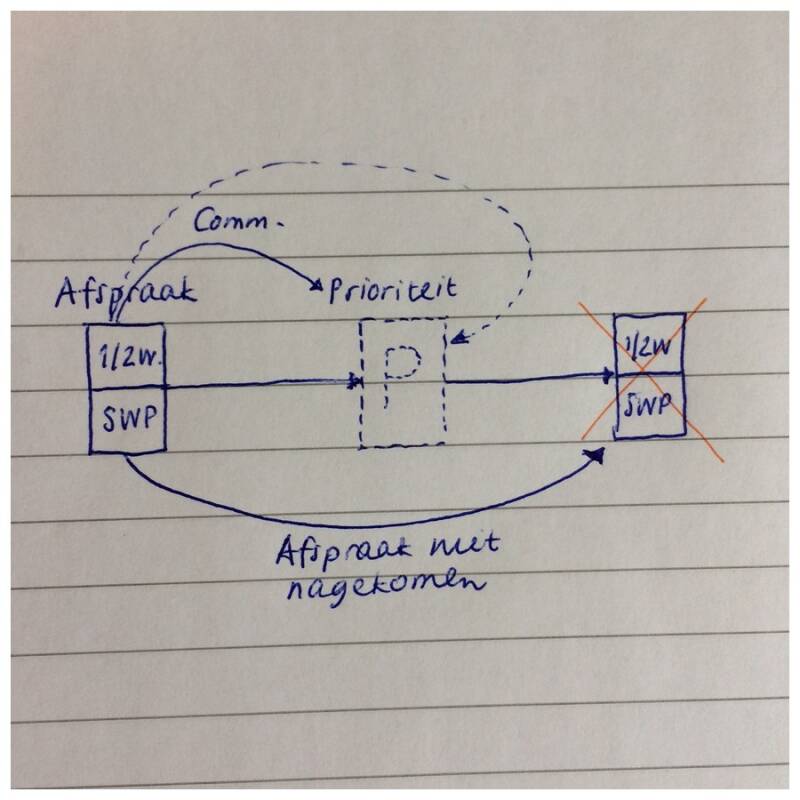 Comm.
Afspraak
Prioriteit
1/2W.
P
1/2W
SWP
SWP
Afspraak niet
nagekomen